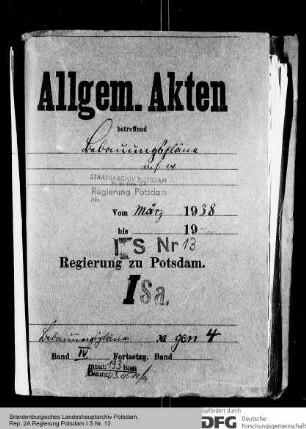 Allgem. Akten
betreffend
Bebauungspläne
u.s.w.
STAATSARCHIV POTSDAM
Regierung Potsdam
Vom März 1938
bis 19
I S Nr 13
Regierung zu Potsdam.
I Sa.
Bebauungspläne No gen 4
Band IV Fortsetzg. Band
Brandenburgisches Landeshauptarchiv Potsdam,
Rep. 2A Regierung Potsdam I S Nr. 13
Gefördert durch
DFG Deutsche
Forschungsgemeinschaft